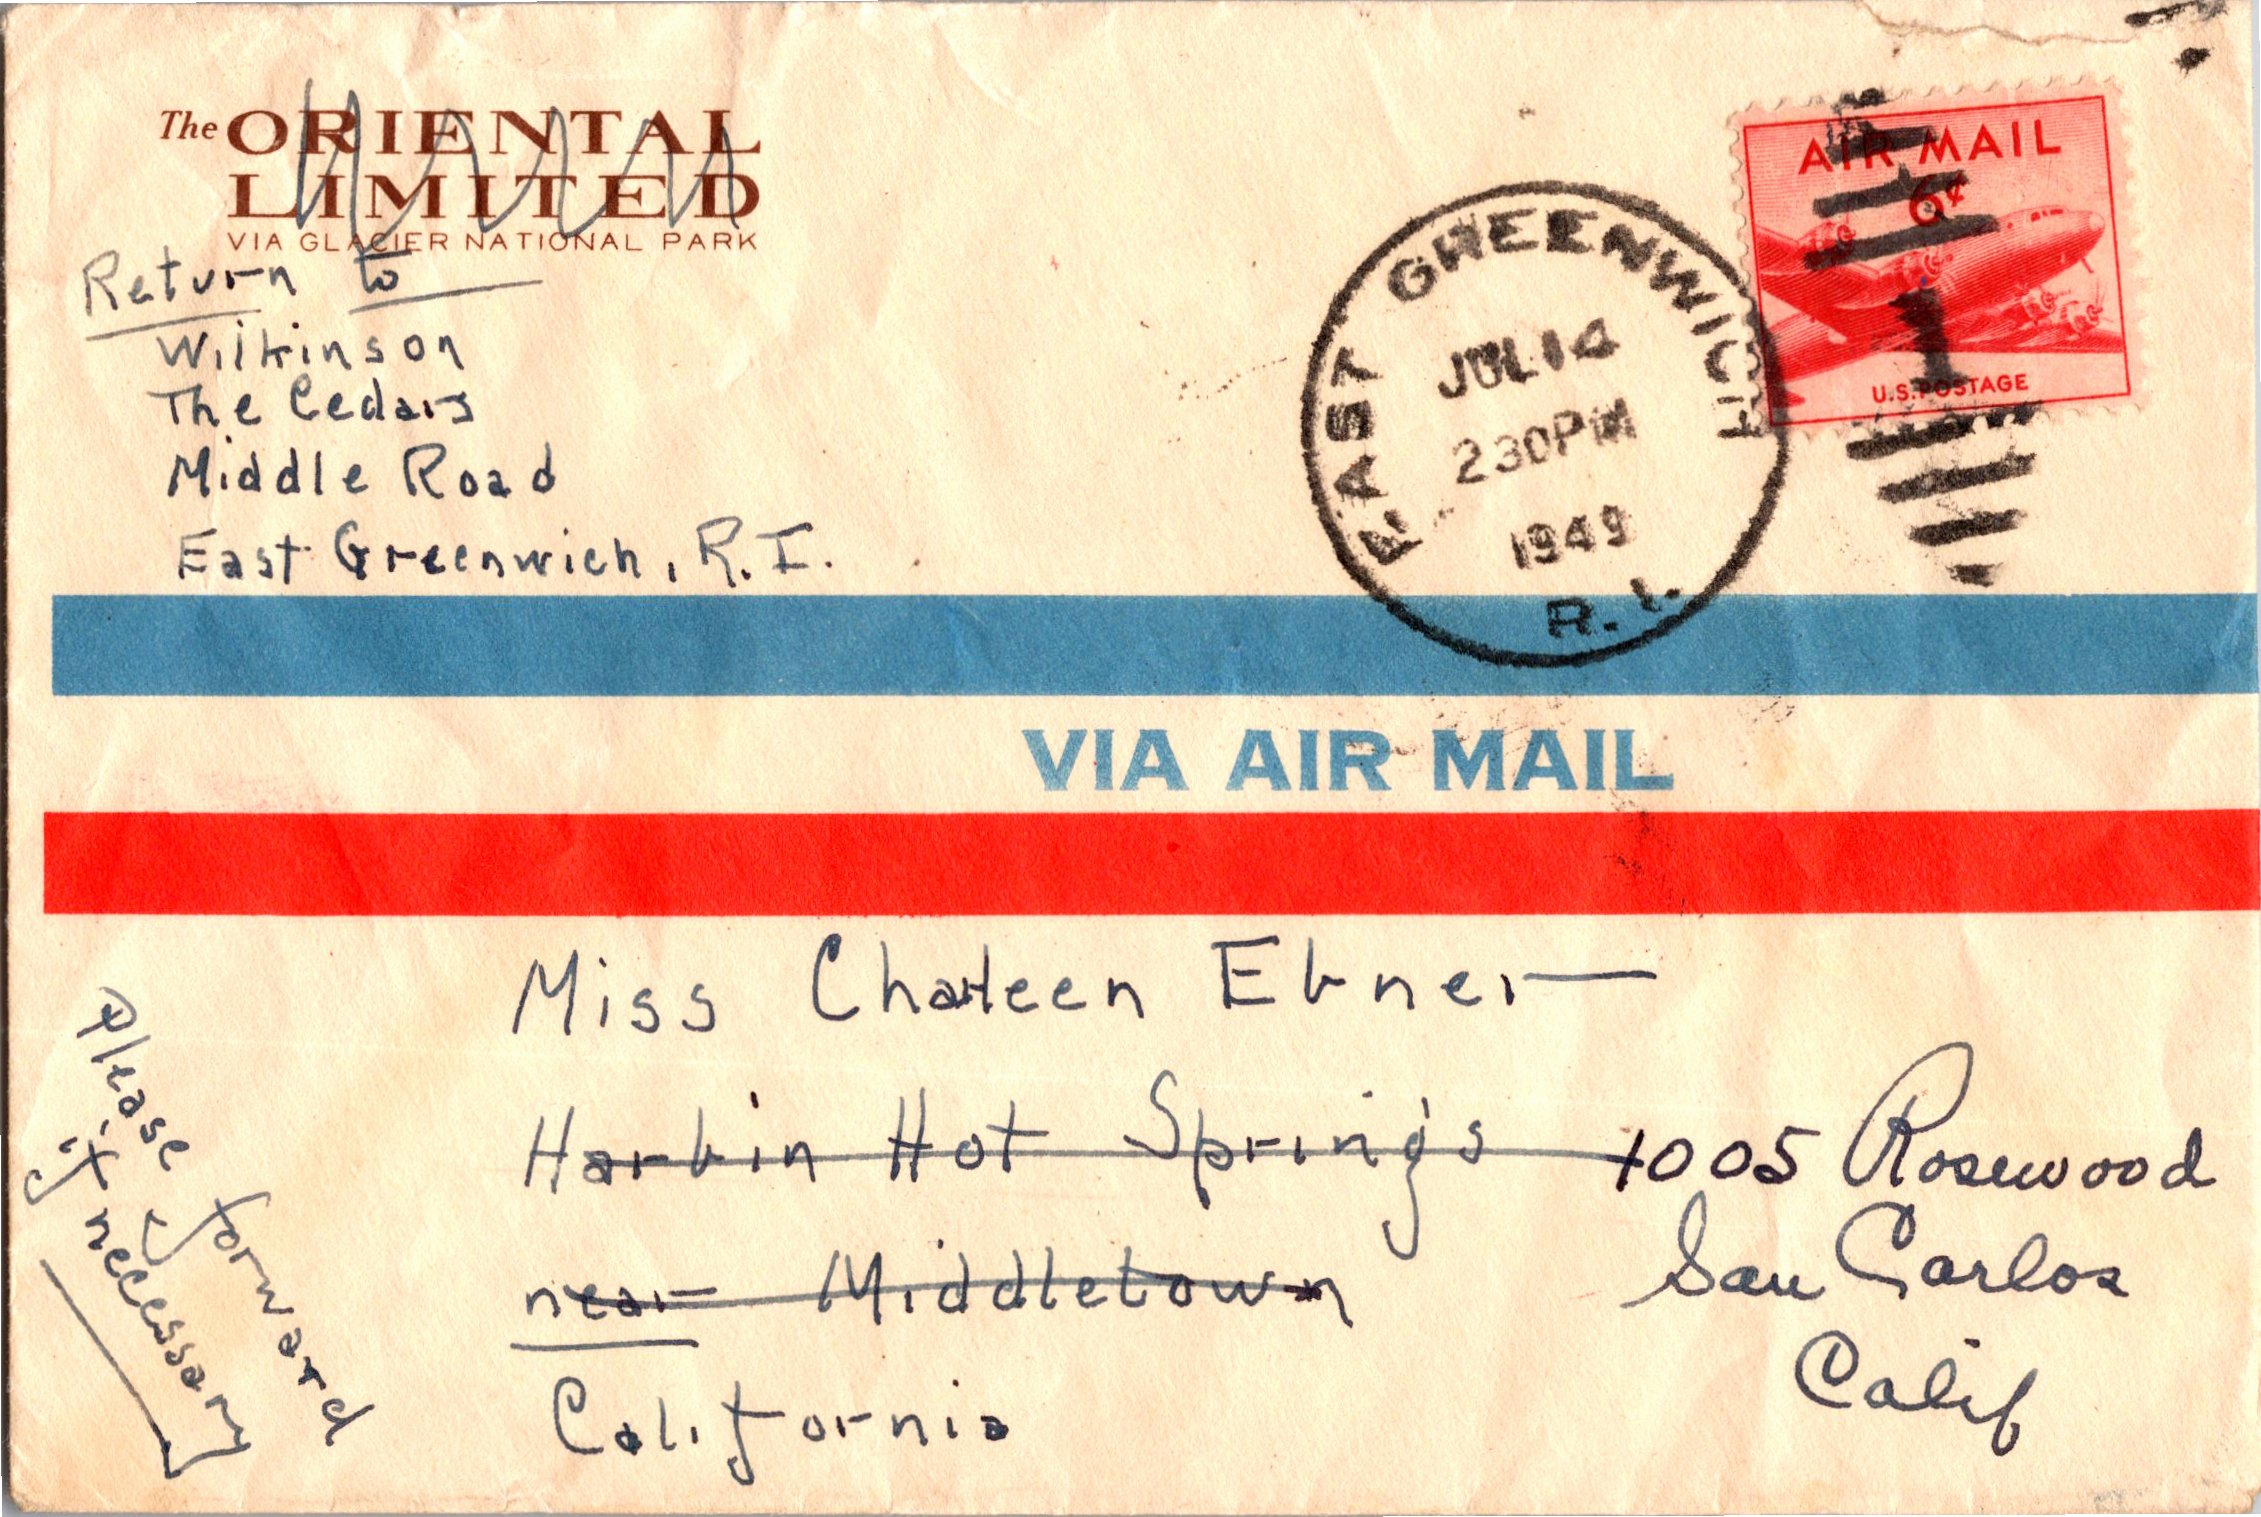 The ORIENTAL
LIMITED
VIA GLACIER NATIONAL PARK
Return to
Wilkinson
The Cedars
Middle Road
East Greenwich, R.I.
EAST GREENWICH
JUL 14
230PM
1949
R. I.
AIR MAIL
6¢
1
U.S. POSTAGE
VIA AIR MAIL
Miss Ebner
Harbin Hot Springs
near Middletown
California
1005 Rosewood
San Carlos
Calif
Please forward
if necessary